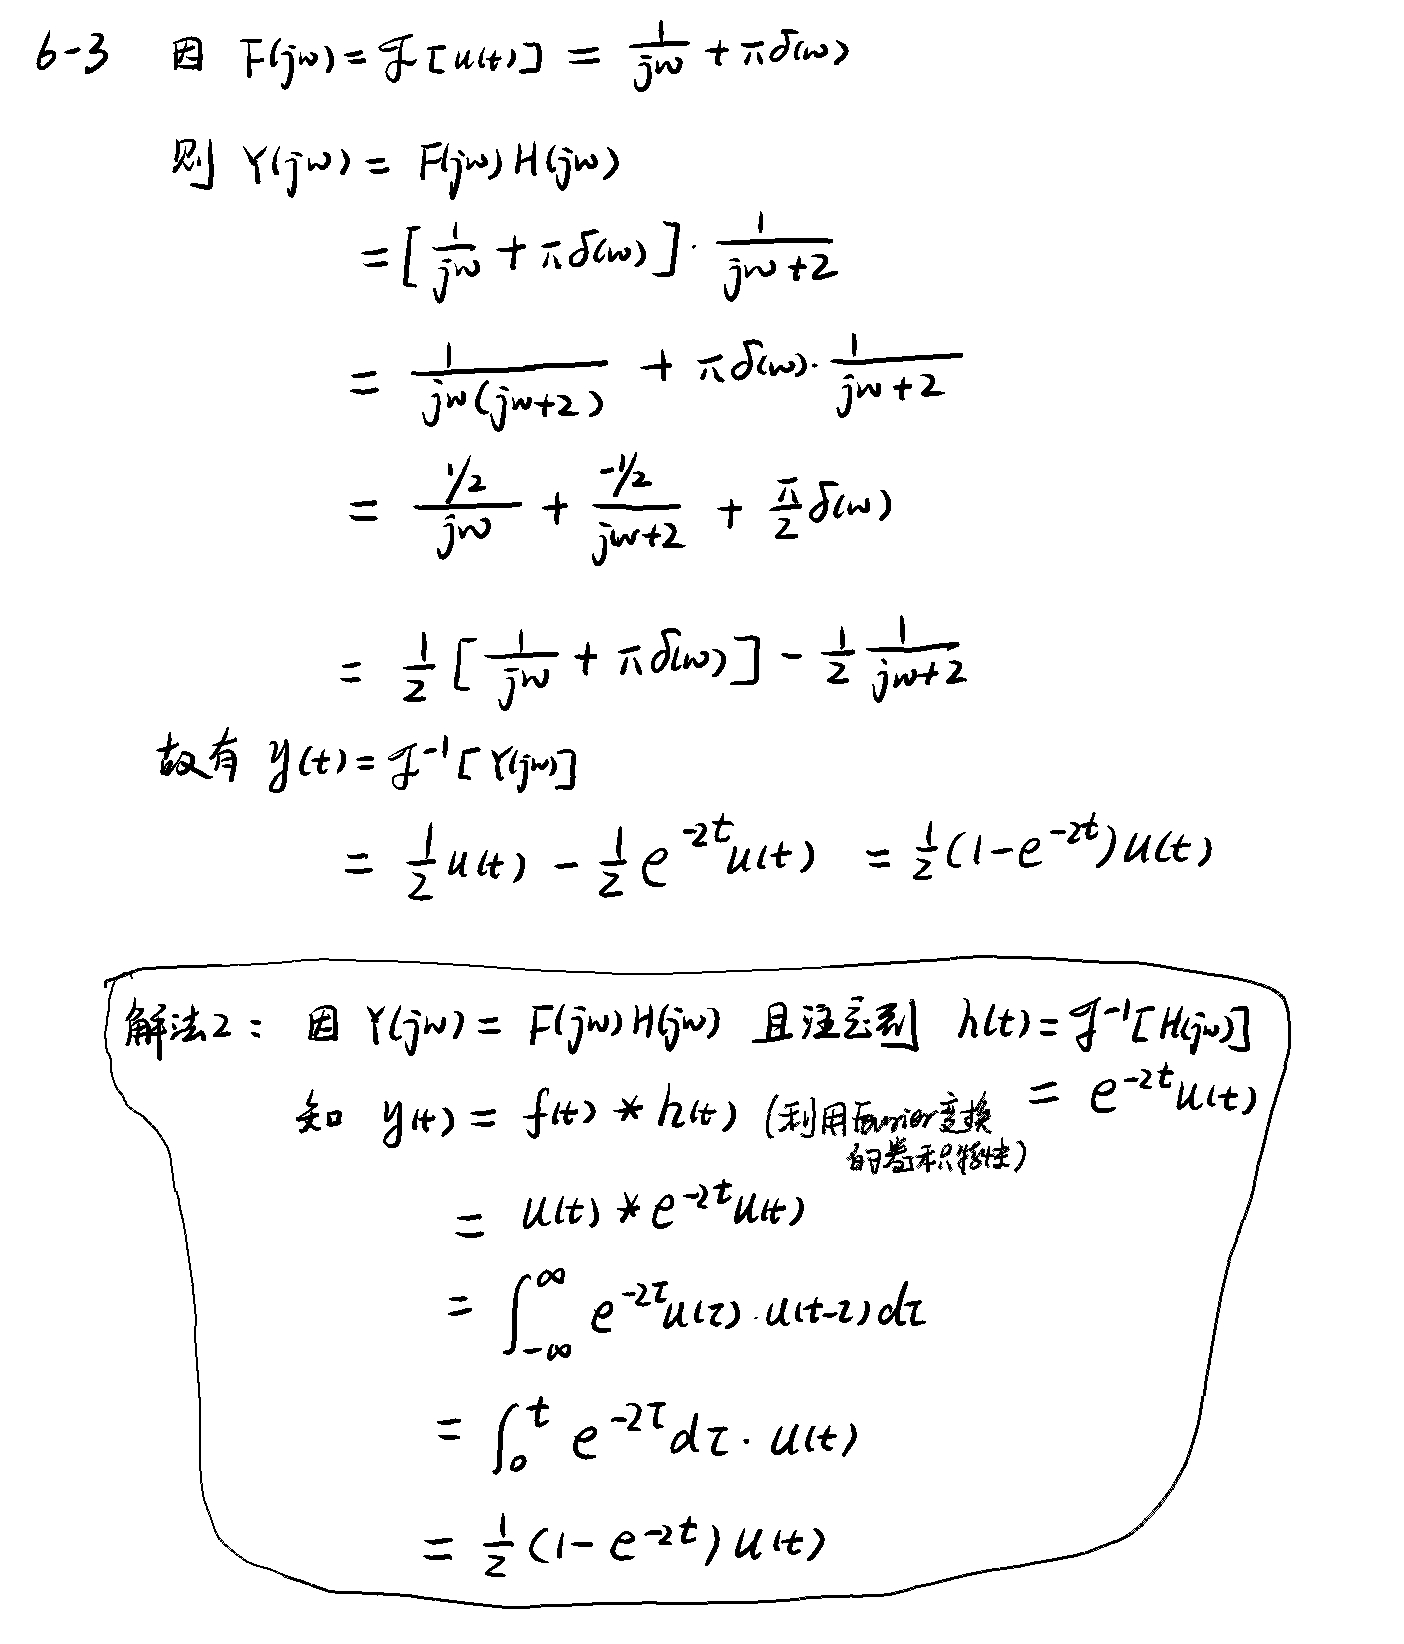 6-3 因 F(jω) = ℱ[u(t)] = 1/(jω) + πδ(ω)
则 Y(jω) = F(jω)H(jω)
= [1/(jω) + πδ(ω)]·1/(jω+2)
= 1/(jω(jω+2)) + πδ(ω)·1/(jω+2)
= (1/2)/(jω) + (-1/2)/(jω+2) + π/2 δ(ω)
= 1/2 [1/(jω) + πδ(ω)] - 1/2 1/(jω+2)
故有 y(t) = ℱ⁻¹[Y(jω)]
= 1/2 u(t) - 1/2 e^{-2t}u(t) = 1/2(1-e^{-2t})u(t)
解法2: 因 Y(jω) = F(jω)H(jω) 且注意到 h(t) = ℱ⁻¹[H(jω)]
= e^{-2t}u(t)
知 y(t) = f(t) * h(t) (利用Fourier变换
的卷积特性)
= u(t) * e^{-2t}u(t)
= ∫_{-∞}^{∞} e^{-2τ}u(τ)·u(t-τ)dτ
= ∫_0^t e^{-2τ}dτ·u(t)
= 1/2(1-e^{-2t})u(t)